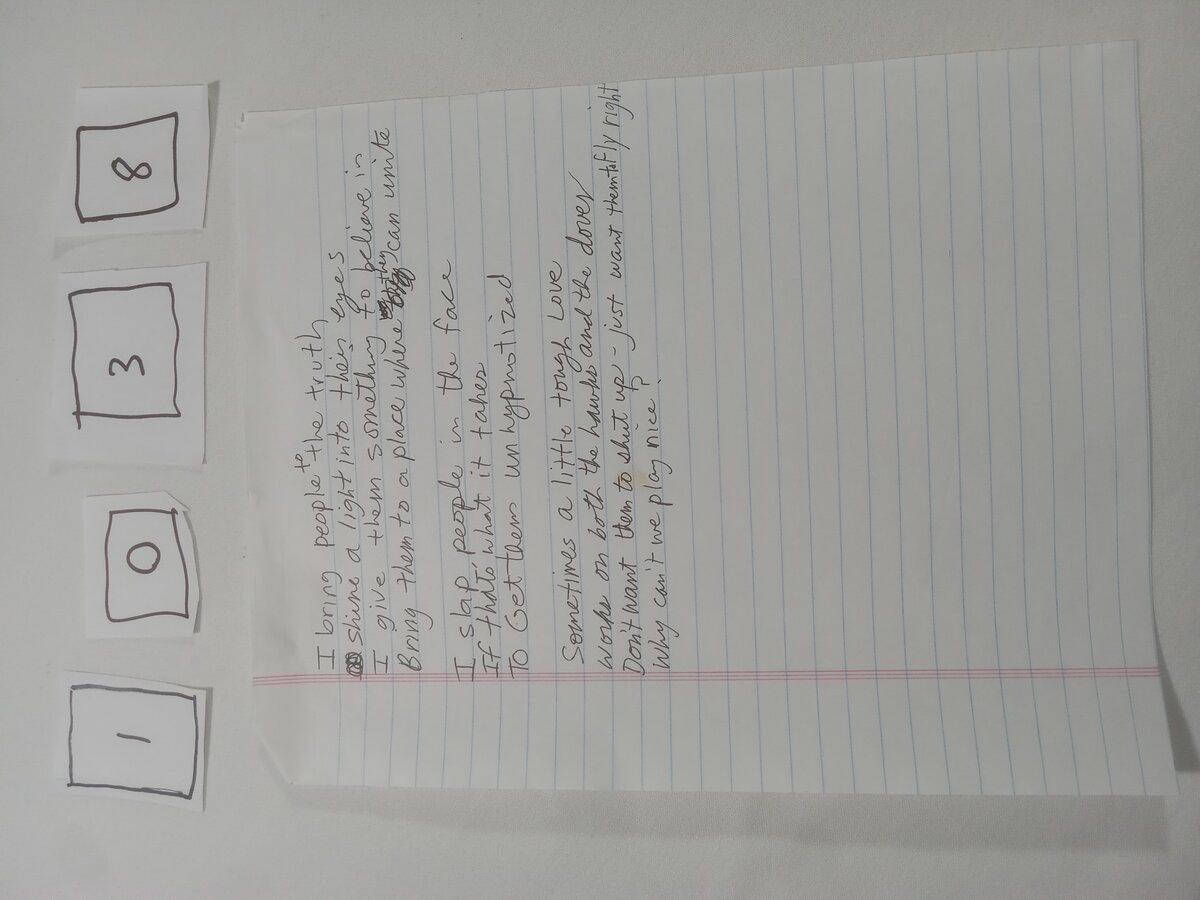 1 0 3 8
I bring people to the truth
shine a light into their eyes
I give them something to believe in
Bring them to a place where they can unite
I slap people in the face
If that's what it takes
To Get them unhypnotized
Sometimes a little tough Love
works on both the hawks and the doves
Don't want them to shut up - just want them to fly right
why can't we play nice?